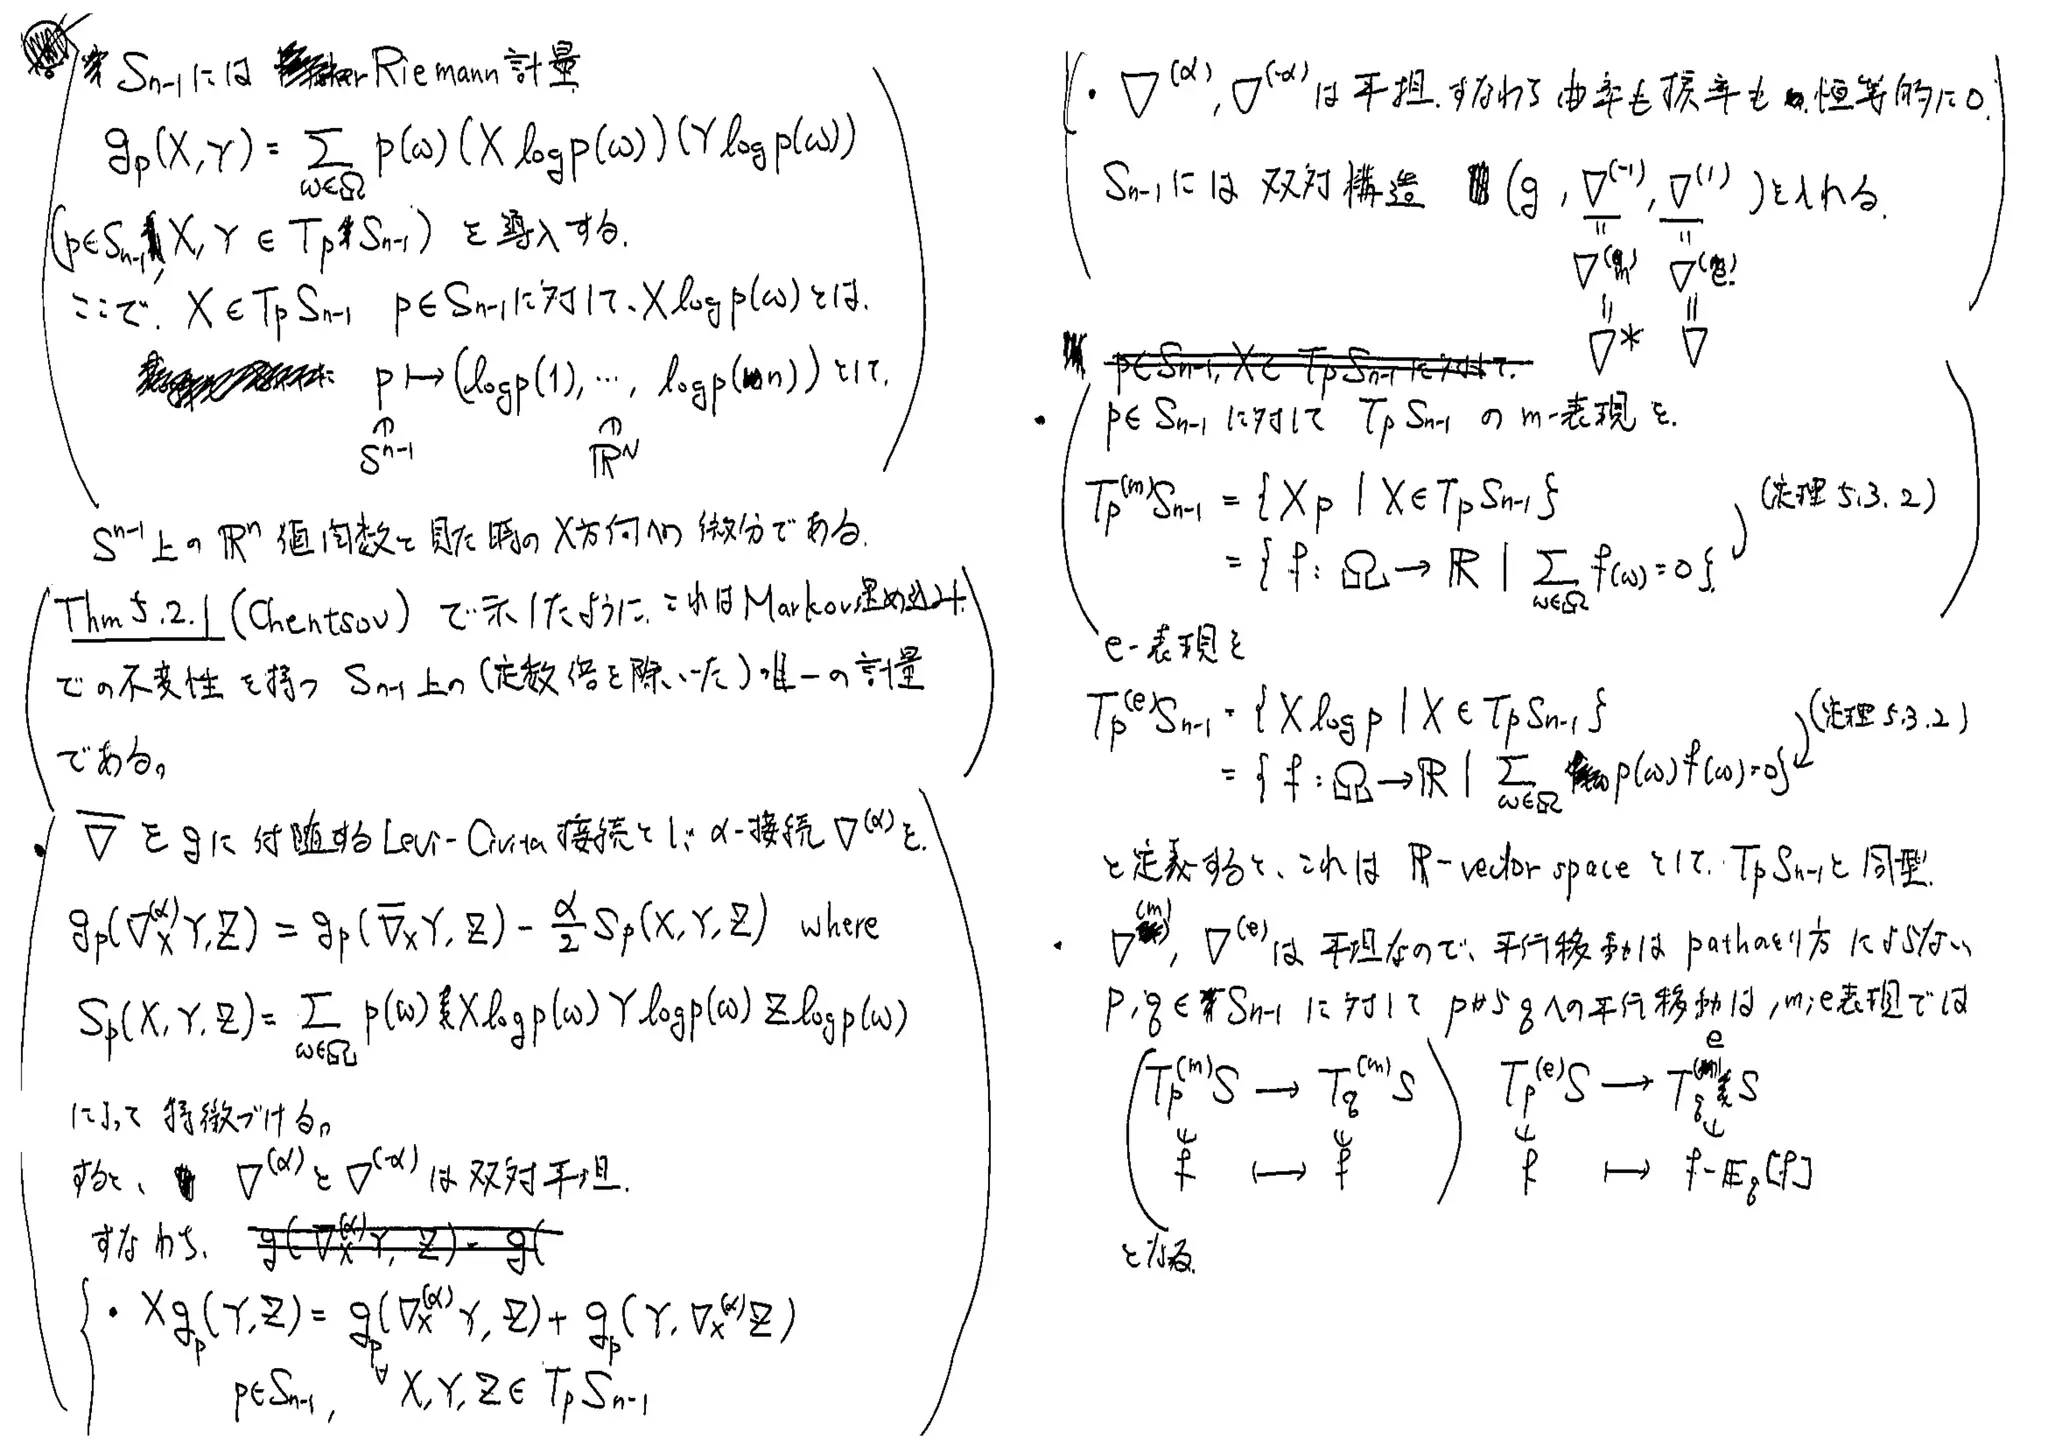 S_{n-1}には Riemann計量
g_p(X,Y) = Σ_{ω∈Ω} p(ω)(X log p(ω))(Y log p(ω))
(p∈S_{n-1}, X,Y ∈ T_p S_{n-1}) を導入する.
ここで, X ∈ T_p S_{n-1} p∈S_{n-1}に対して、X log p(ω) とは.
p ↦ (log p(1), …, log p(n)) として,
∈ ∈
S^{n-1} ℝ^N
S^{n-1}上の ℝ^n 値関数と見た時の X方向への微分である.
Thm 5.2.1 (Chentsov) で示したように. これは Markov埋め込み
での不変性を持つ S_{n-1}上の (定数倍を除いた) 唯一の計量
である。
・ ∇̄ を gに付随する Levi-Civita 接続とし, α-接続 ∇^{(α)} を.
g_p(∇_X^{(α)}Y, Z) = g_p(∇̄_X Y, Z) - α/2 S_p(X, Y, Z) where
S_p(X, Y, Z) = Σ_{ω∈Ω} p(ω) X log p(ω) Y log p(ω) Z log p(ω)
によって 特徴づける。
すると、 ∇^{(α)} と ∇^{(-α)} は 双対平坦.
すなわち. g(∇_X^{(α)}Y, Z) - g(
・ X g_p(Y, Z) = g_p(∇_X^{(α)}Y, Z) + g_p(Y, ∇_X^{(α)}Z)
p∈S_{n-1}, ∀ X, Y, Z ∈ T_p S_{n-1}
・ ∇^{(α)}, ∇^{(-α)} は 平坦. すなわち 曲率も捩率も 恒等的に 0.
S_{n-1}には 双対構造 (g, ∇^{(-1)}, ∇^{(1)}) を入れる.
= =
∇^{(m)} ∇^{(e)}
= =
∇* ∇
p∈S_{n-1}, X∈ T_p S_{n-1} に対して.
・ p∈S_{n-1} に対して T_p S_{n-1} の m-表現を.
T_p^{(m)}S_{n-1} = { X p | X∈T_p S_{n-1} }
(定理 5.3.2)
= { f : Ω → ℝ | Σ_{ω∈Ω} f(ω) = 0 }.
e-表現を
T_p^{(e)}S_{n-1} = { X log p | X ∈ T_p S_{n-1} }
(定理 5.3.2)
= { f : Ω → ℝ | Σ_{ω∈Ω} p(ω) f(ω) = 0 }
と定義すると、これは ℝ-vector space として. T_p S_{n-1}と同型.
・ ∇^{(m)}, ∇^{(e)} は 平坦なので、平行移動は pathのとり方によらない
p, q ∈ S_{n-1} に対して pから qへの平行移動は, m, e表現では
T_p^{(m)}S → T_q^{(m)}S T_p^{(e)}S → T_q^{(e)}S
∈ ∈ ∈ ∈
f ↦ f f ↦ f - 𝔼_q[f]
となる.